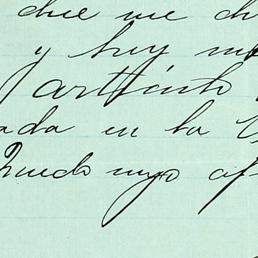 dice me di
y hoy m
artículo
ada en la
Quedo suyo af